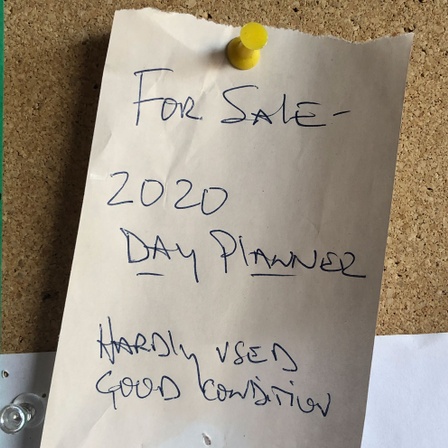 FOR SALE-
2020
DAY PLANNER
HARDLY USED
GOOD CONDITION